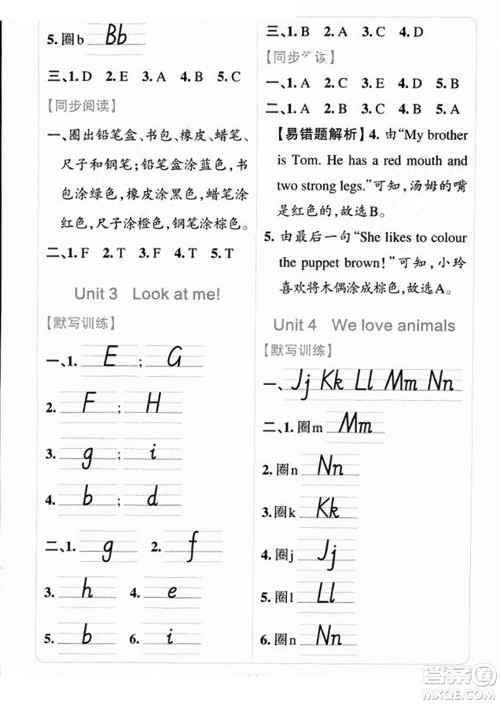 5.圈b Bb
三、1.D 2.E 3.A 4.B 5.C
【同步阅读】
一、圈出铅笔盒、书包、橡皮、蜡笔、
尺子和钢笔;铅笔盒涂蓝色,书
包涂绿色,橡皮涂黑色,蜡笔涂
红色,尺子涂橙色,钢笔涂棕色。
二、1.F 2.T 3.F 4.T 5.T
Unit 3 Look at me!
【默写训练】
一、1. E ; G
2. F ; H
3. g ; i
4. b ; d
二、1. g 2. f
3. h 4. e
5. b 6. i
三、1.B 2.A 3.C 4.D
【同步 读】
一、1.B 2.A 3.A 4.B 5.C
二、1.A 2.C 3.B 4.B 5.A
【易错题解析】4. 由“My brother
is Tom. He has a red mouth and
two strong legs.”可知,汤姆的嘴
是红色的,故选B。
5. 由最后一句“She likes to colour
the puppet brown!”可知,小玲
喜欢将木偶涂成棕色,故选A。
Unit 4 We love animals
【默写训练】
一、Jj Kk Ll Mm Nn
二、1.圈m Mm
2.圈n Nn
3.圈k Kk
4.圈J Jj
5.圈l Ll
6.圈n Nn
答案圈
MXQE.COM